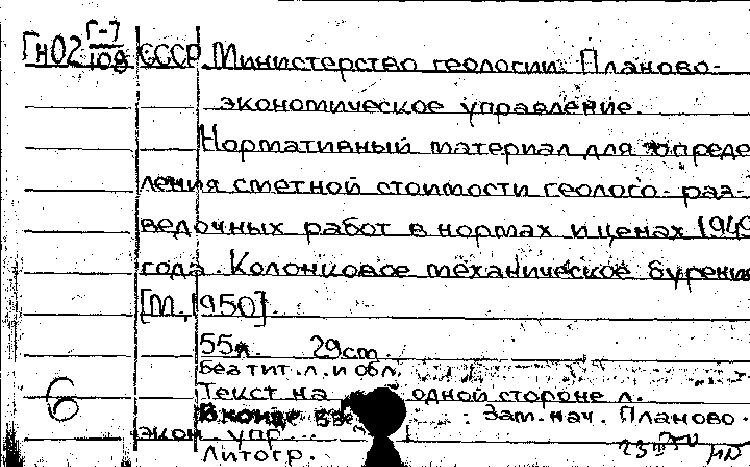 Гн02 Г-7/108 СССР. Министерство геологии. Планово-
экономическое управление.
Нормативный материал для опреде
ления сметной стоимости геолого-раз-
ведочных работ в нормах и ценах 1949
года. Колонковое механическое бурение
[М., 1950].
55л. 29cm.
Без тит. л. и обл.
Текст на одной стороне л.
В конце : Зам. нач. Планово.
6 экон. упр...
Литогр.